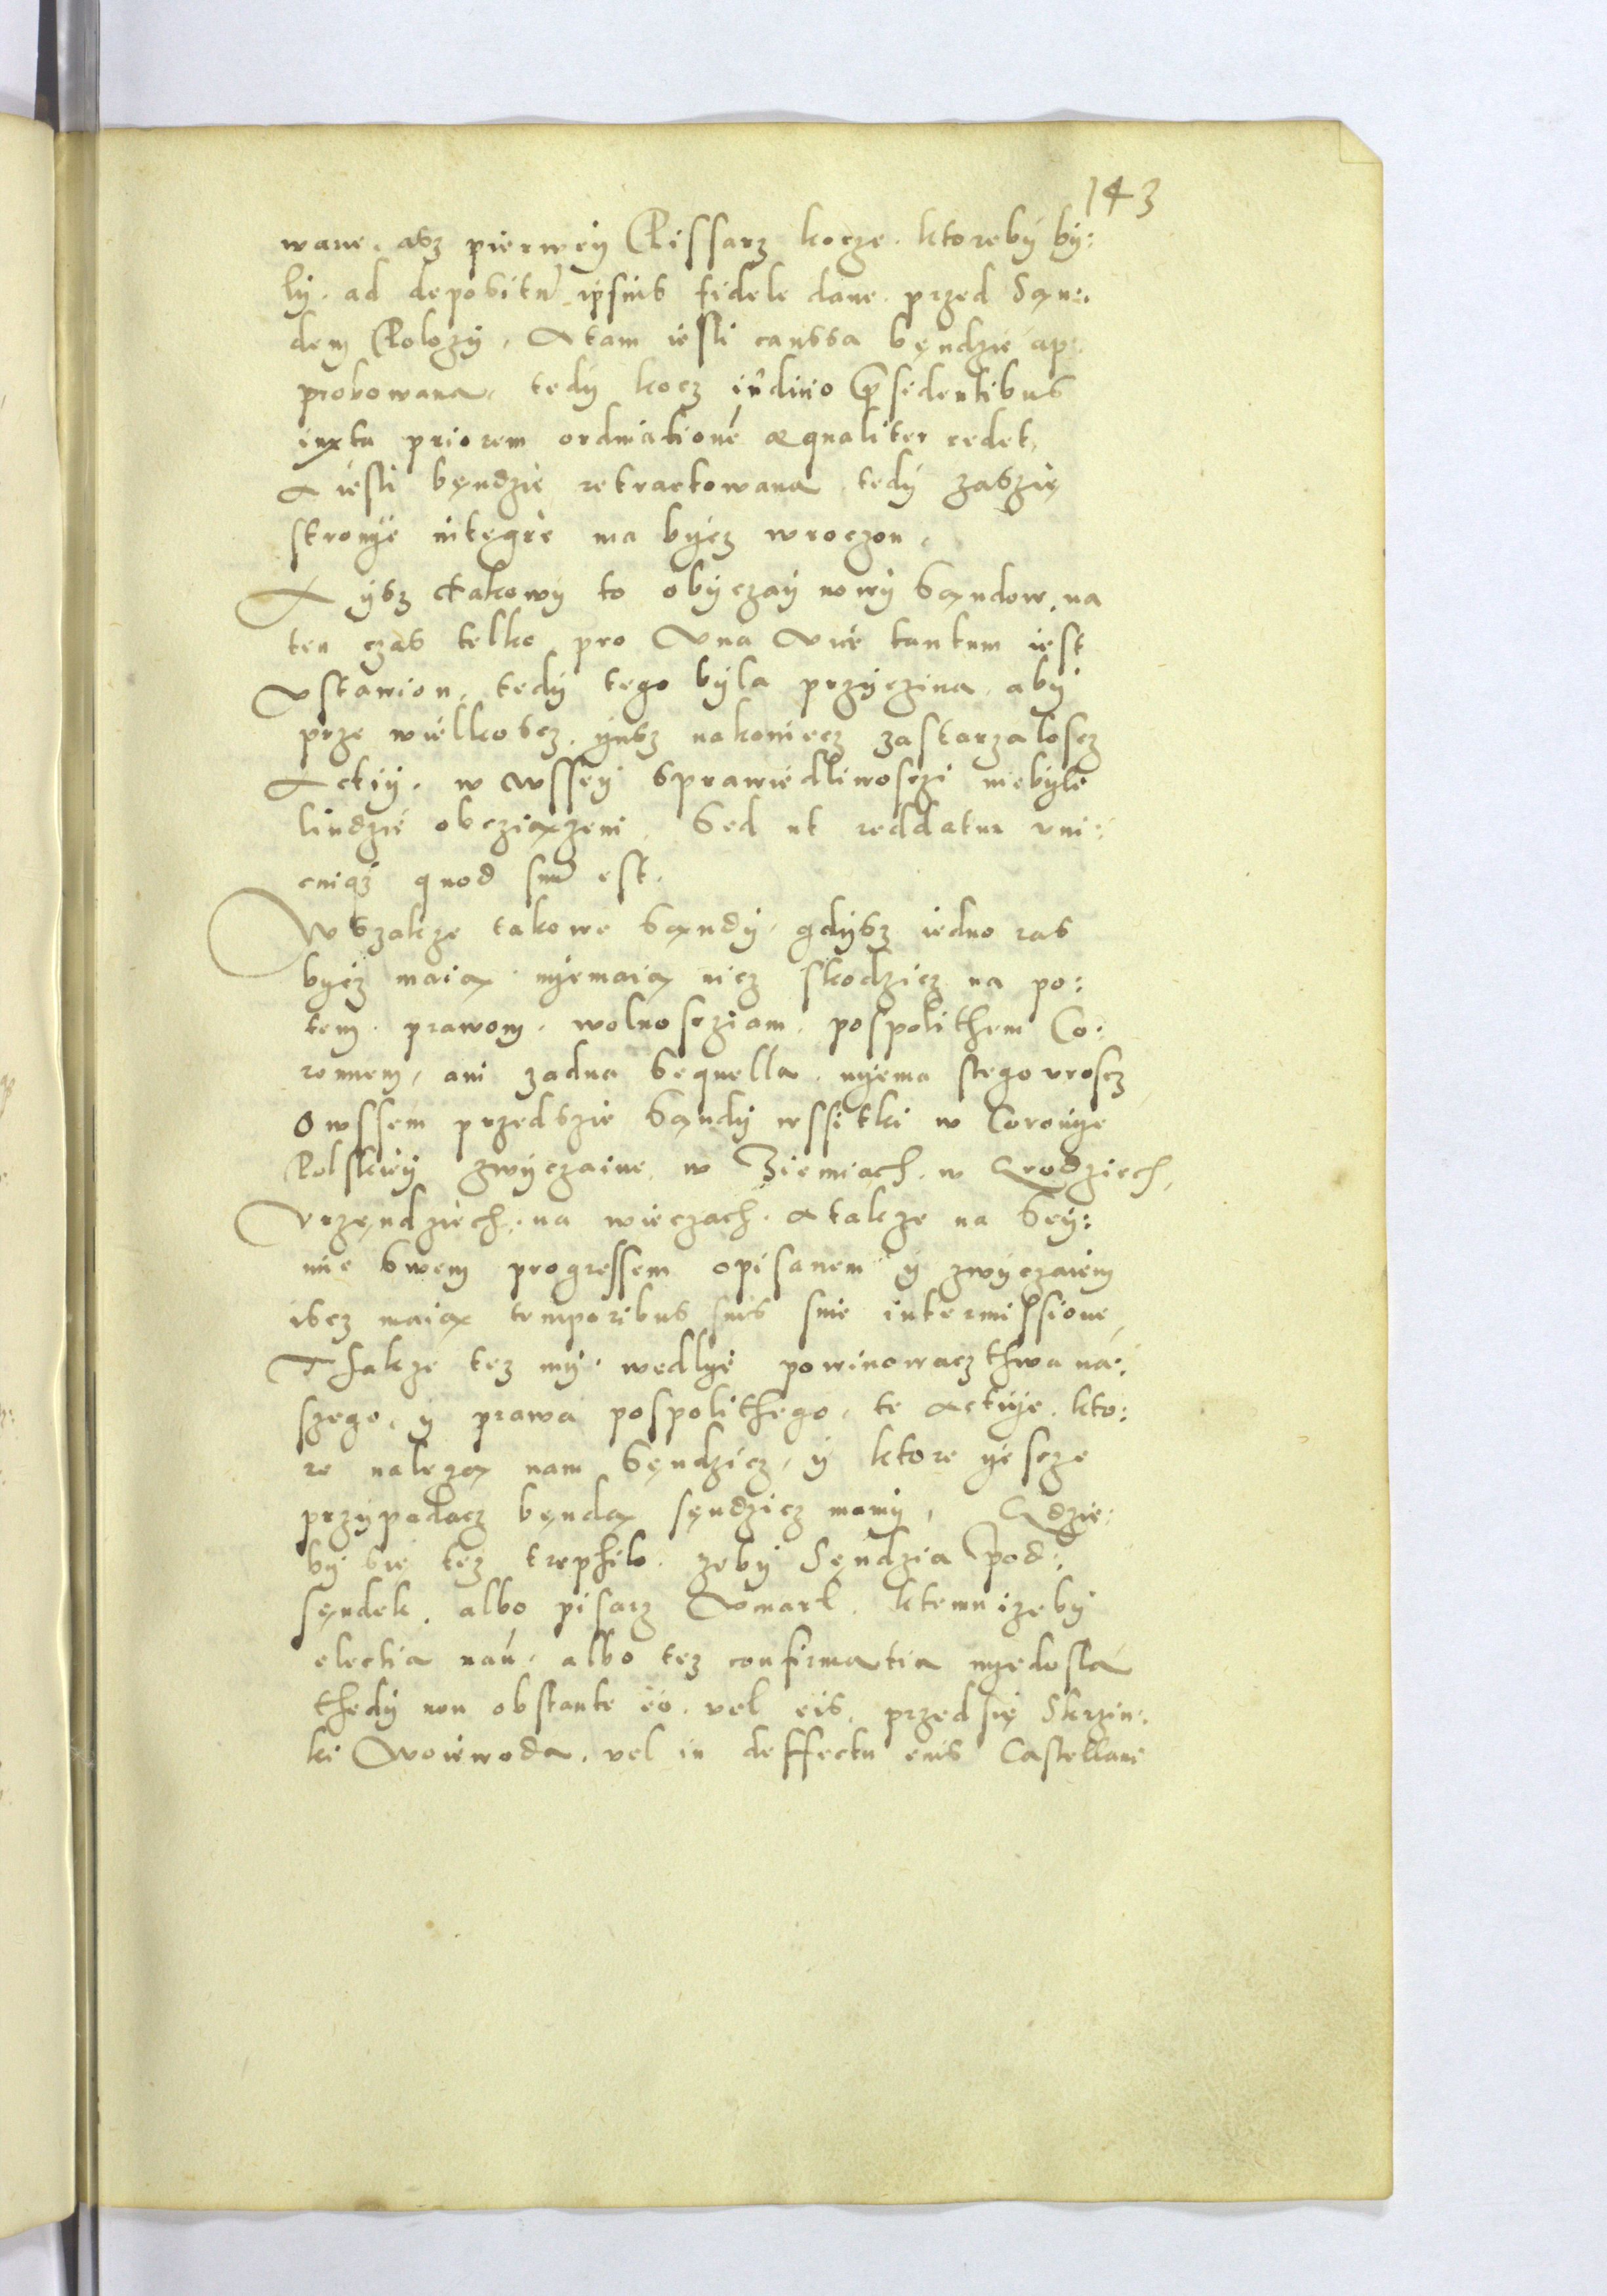 143
wane. asz pierwey Pissarz kocze. ktoreby by:
ly. ad depositu ipsius fidele dane. przed Sąn:
dem Polozy, A tam iesli caussa będzie ap:
probowana, tedy kocz iudicio Præsidentibus
iuxta priorem ordinatione æqualiter cedet,
A iesli bęndzie retractowana tedy zaszię
stronye integre ma bycz wroczon,
A ysz takowy to obyczay nowy Sąndow, na
ten czas telko pro Vna Vice tantum iest
Vstawion, tedy tego byla przyczina, aby
prze wielkoscz, ynsz nakoniecz zastarzaloscz
Actiy, w Wssey sprawiedliwosczi niebyle
liudzie obcziązeni, Sed ut reddatur vni:
cuiqz quod suu est.
Wszakze takowe Sąndy, gdysz iedno ras
bycz maią nyemaią nicz skodzicz na po:
tem, prawom, wolnosciam, pospolithem Co:
ronnem, ani zadna Sequella, nyema stego vroscz
Owssem przedszie Sąndy wssitki w Coronye
Polskiey zwyczaine, w Ziemiach, w Grodziech,
Vrzęndziech, na wieczach, A takze na Sey:
mie Swem progressem opisanem y zwyczaiem
iscz maią temporibus suis sine intermissione,
Thakze tez my, wedlye powinowaczthwa na:
szego, y prawa pospolithego, te Actiye, kto:
re nalezą nam Sęndzicz, y ktore yescze
przypadacz bęndą sęndzicz mamy, Gdzie:
by sie tez trephilo, zeby Sęndzia Pod:
sęndek, albo pisarz Vmarl, ktemu izeby
electia nań, albo tez confirmatia nyedosla
thedy non obstante eo, vel eis, przedsię Skrzin:
ki Woiewoda, vel in deffectu eius Castellani